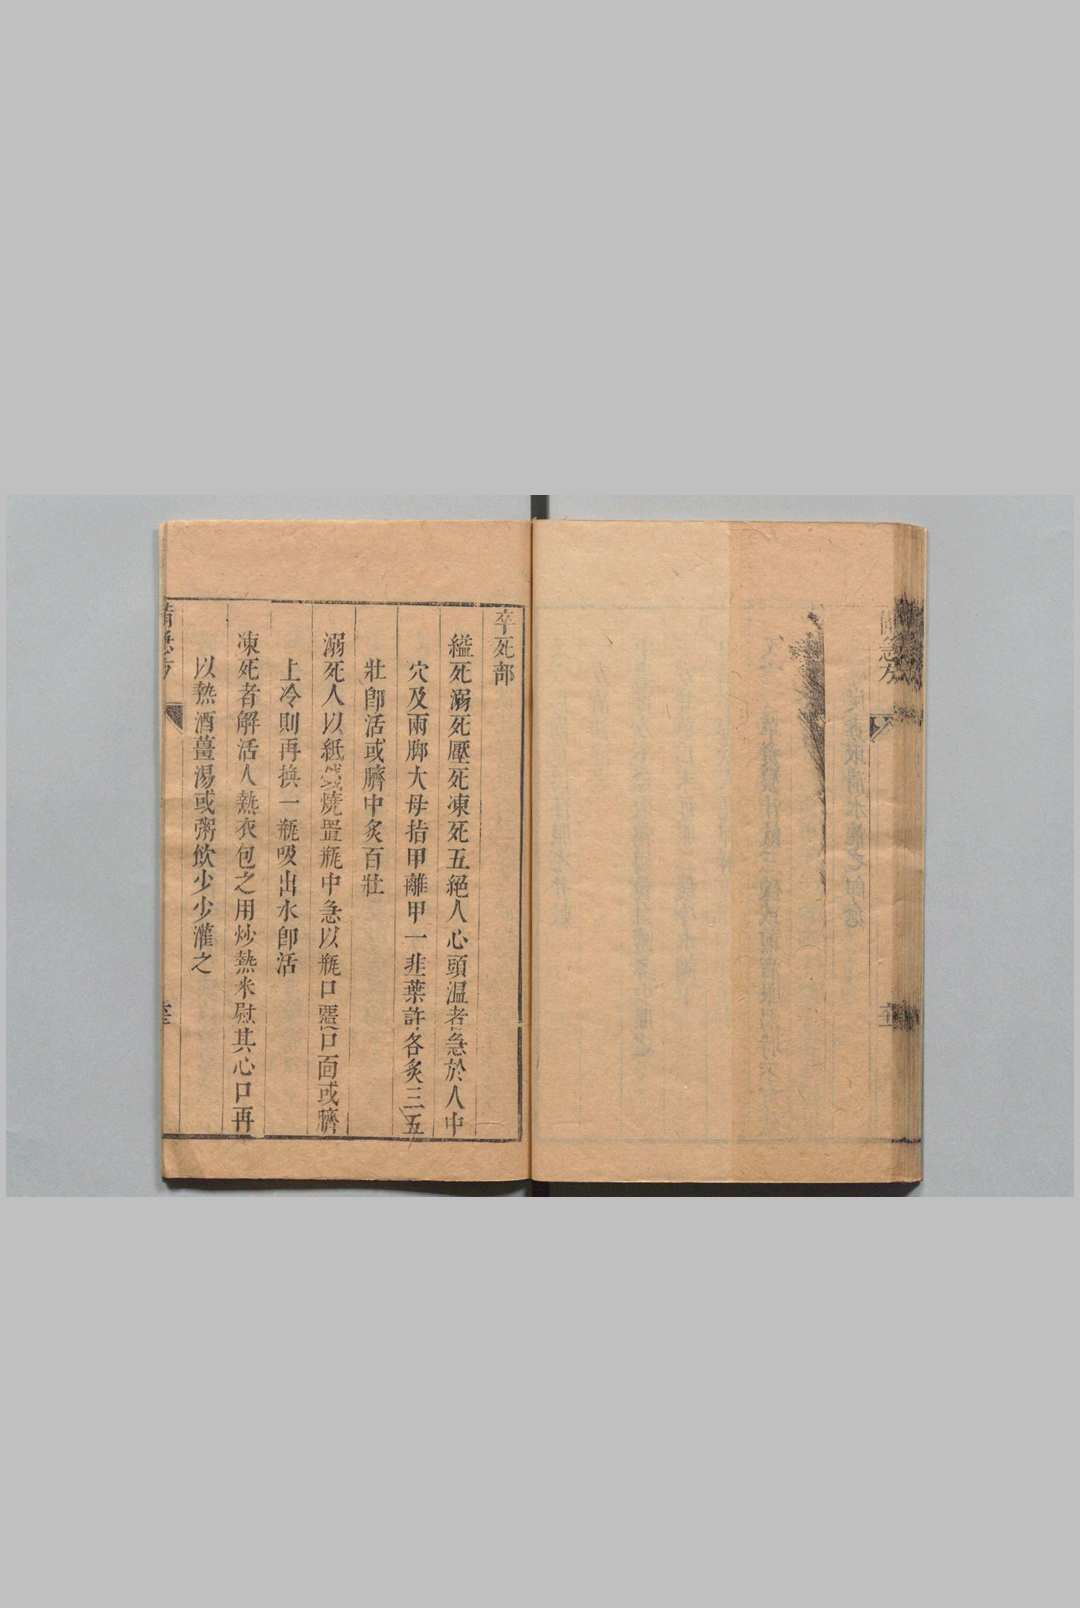 卒死部
縊死溺死壓死凍死五絕人心頭溫者急於人中
穴及兩脚大母指甲離甲一韭葉許各炙三五
壯卽活或臍中炙百壯
溺死人以紙燒置瓶中急以瓶口罨口面或臍
上冷則再換一瓶吸出水卽活
凍死者解活人熱衣包之用炒熱米慰其心口再
以熱酒薑湯或粥飮少少灌之
備急方